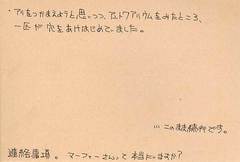 ・アリをつかまえようと思いつつ、アントアリウムをみたところ、
一匹が穴をあけはじめていました。
…この連絡所です。
連絡農場。マーフィーさんって本当にいますか?